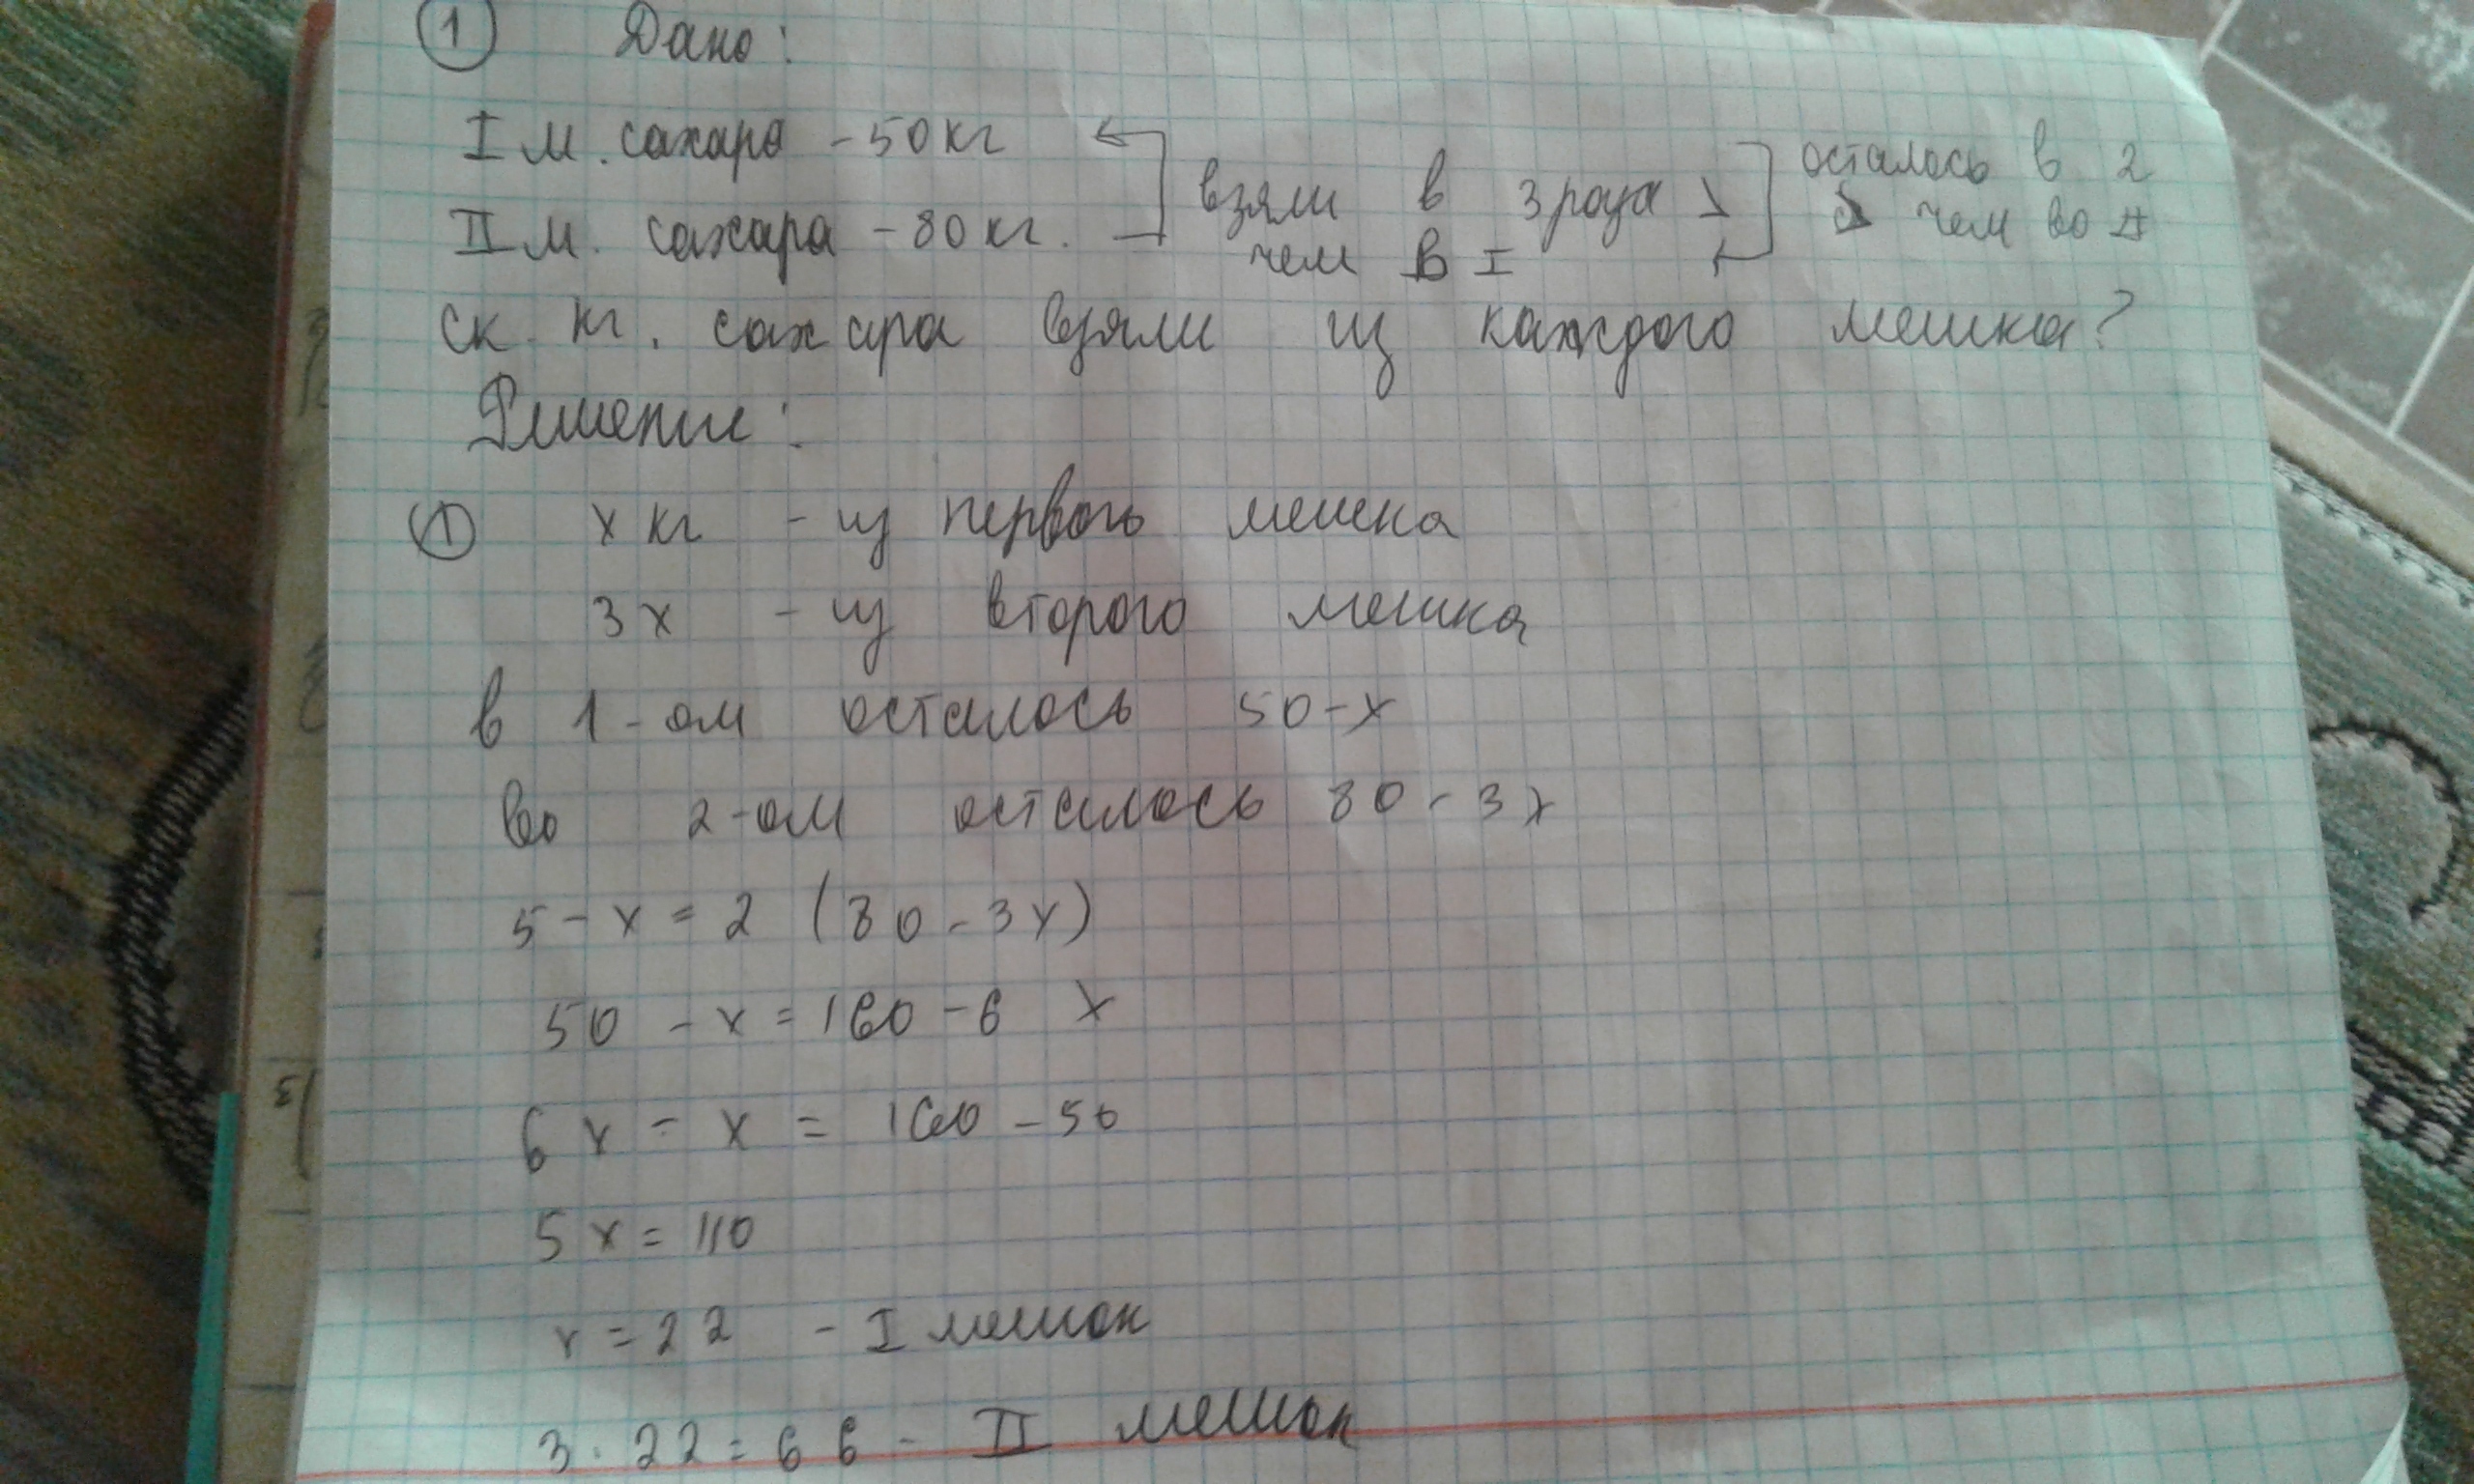 ① Дано:
I м. сахара - 50 кг
II м. сахара - 80 кг.
взяли в 3 раза >
чем в I
осталось в 2
> чем во II
ск. кг. сахара взяли из каждого мешка?
Решение:
① х кг - из первого мешка
3х - из второго мешка
в 1-ом осталось 50-х
во 2-ом осталось 80-3х
5-х=2(80-3х)
50-х=160-6х
6х-х=160-50
5х=110
х=22 - I мешок
3·22=66- II мешок